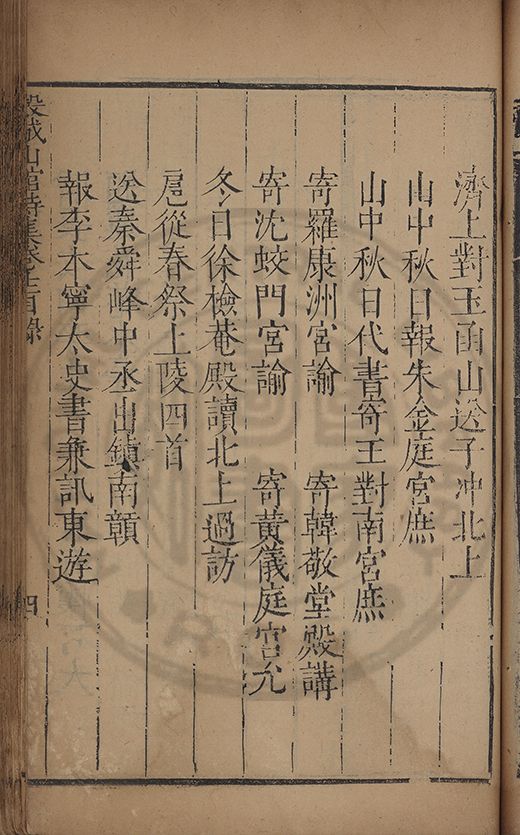 濟上對玉函山送子冲北上
山中秋日報朱金庭宫庶
山中秋日代書寄王對南宫庶
寄羅康洲宫諭　寄韓敬堂殿講
寄沈蛟門宫諭　寄黃儀庭宫允
冬日徐檢菴殿讀北上過訪
扈從春祭上陵四首
送秦舜峰中丞出鎮南贛
報李本寧太史書兼訊東遊
穀城山館詩集卷之目錄
四